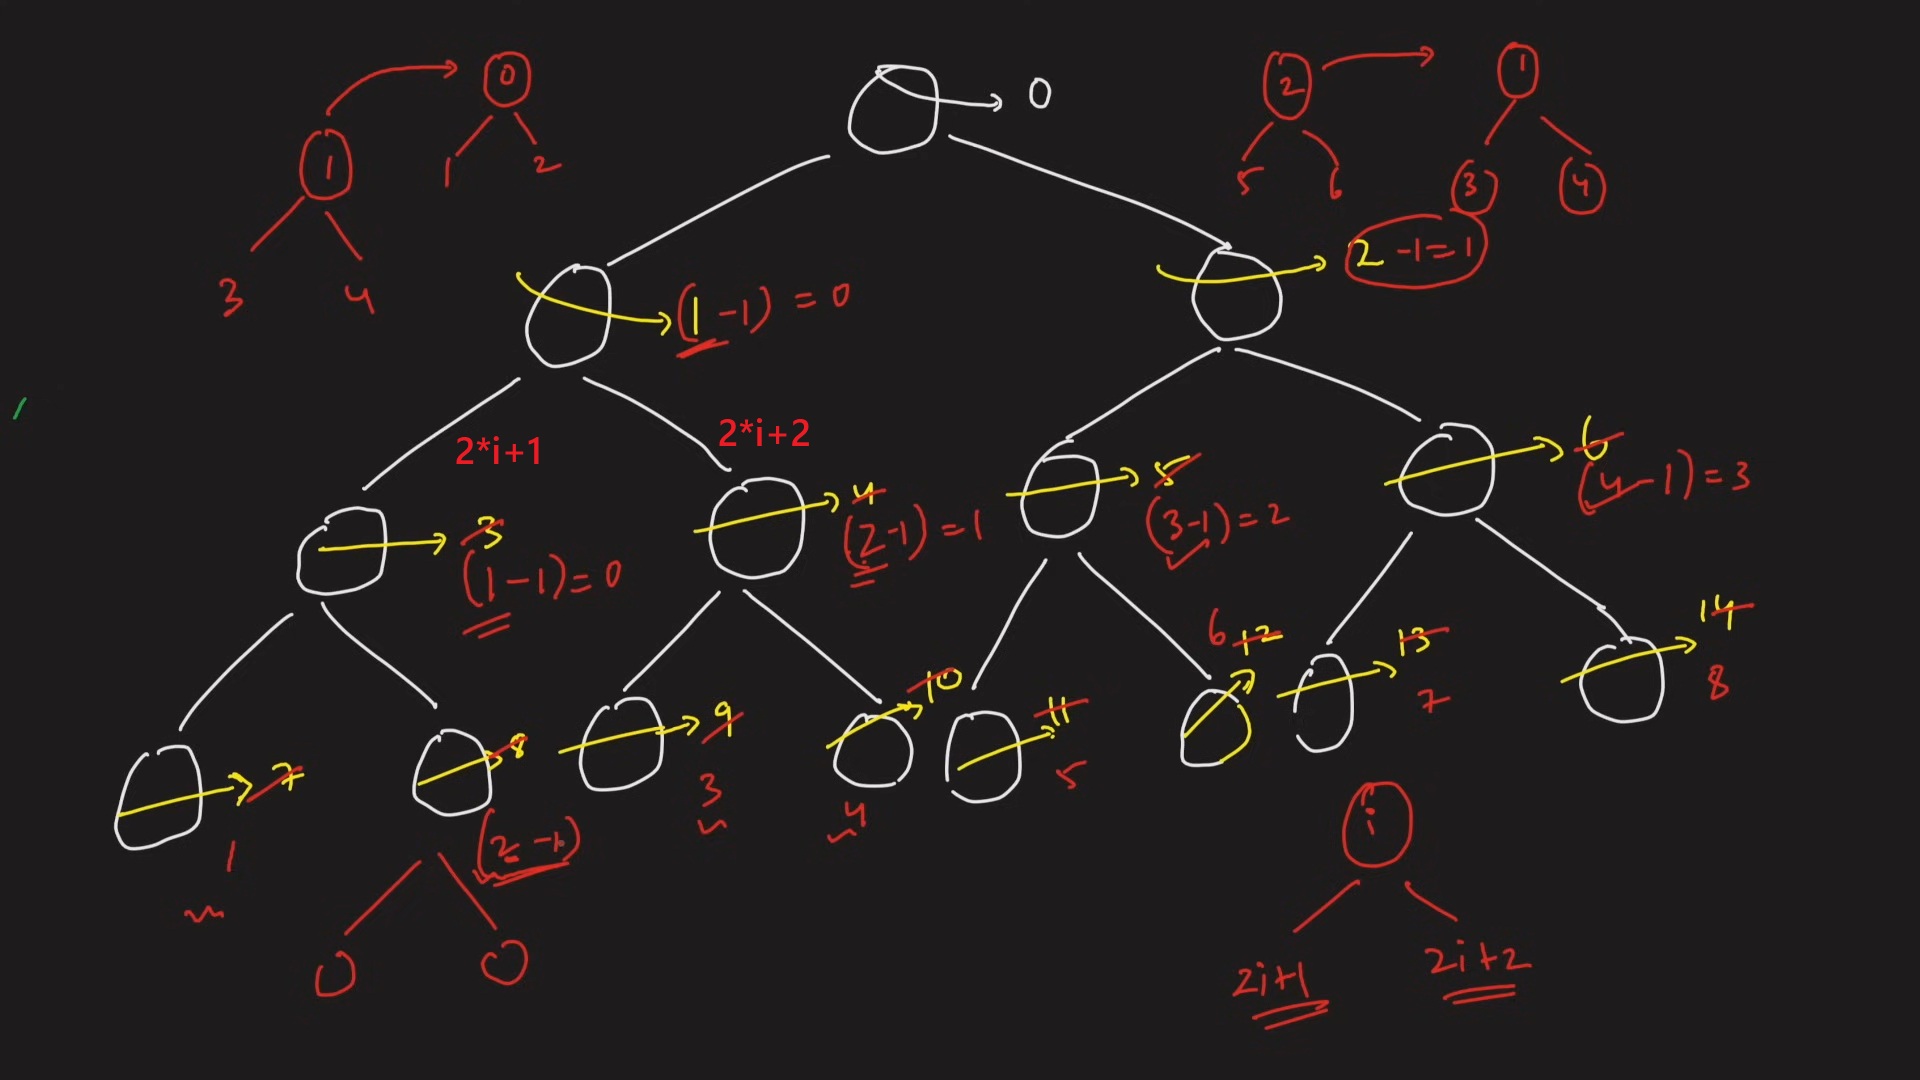 0
1
2
1
3
4
0
2
5
6
1
3
4
2 -1=1
(1-1) = 0
2*i+1
2*i+2
3
(1-1)=0
4
(2-1)=1
5
(3-1)=2
6
(4-1)=3
7
1
8
(2-1)
9
3
10
4
11
5
6 12
13
7
14
8
i
2i+1
2i+2